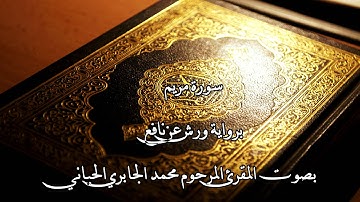 سورة مريم
برواية ورش عن نافع
بصوت المقرئ المرحوم محمد الجابري الحياني